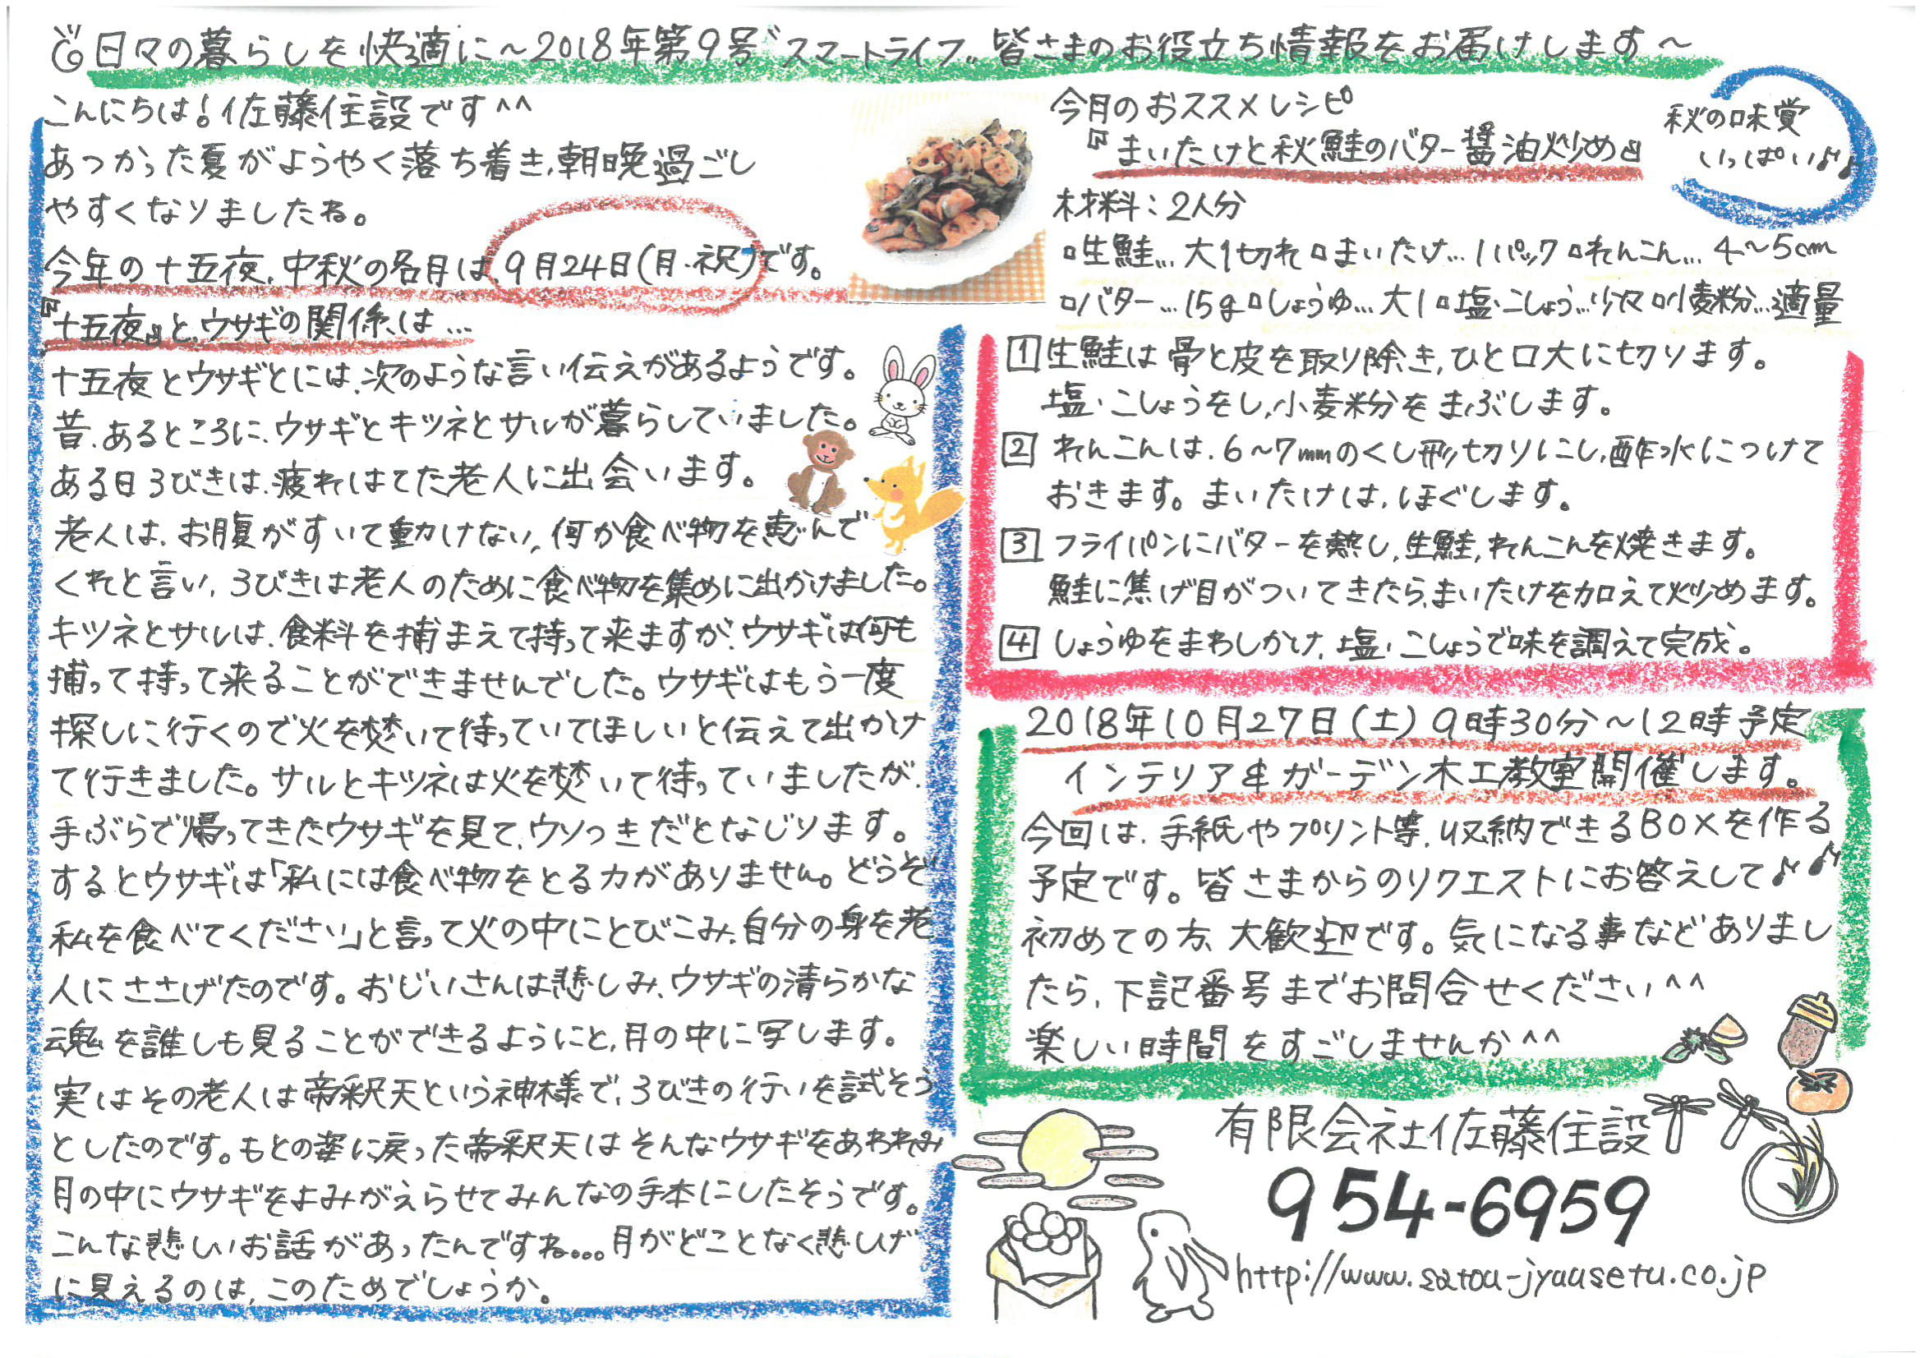 日々の暮らしを快適に～2018年第9号〝スマートライフ〟皆さまのお役立ち情報をお届けします～
こんにちは！佐藤住設です^^
あつかった夏がようやく落ち着き、朝晩過ごし
やすくなりましたね。
今年の十五夜、中秋の名月は9月24日(月・祝)です。
『十五夜』と、ウサギの関係は…
十五夜とウサギとには、次のような言い伝えがあるようです。
昔、あるところに、ウサギとキツネとサルが暮らしていました。
ある日3びきは、疲れはてた老人に出会います。
老人は、お腹がすいて動けない、何か食べ物を恵んで
くれと言い、3びきは老人のために食べ物を集めに出かけました。
キツネとサルは、食料を捕まえて持って来ますが、ウサギは何も
捕って持って来ることができませんでした。ウサギはもう一度
探しに行くので火を焚いて待っていてほしいと伝えて出かけ
て行きました。サルとキツネは火を焚いて待っていましたが、
手ぶらで帰ってきたウサギを見て、ウソつきだとなじります。
するとウサギは「私には食べ物をとる力がありません。どうぞ
私を食べてください」と言って火の中にとびこみ、自分の身を老
人にささげたのです。おじいさんは悲しみ、ウサギの清らかな
魂を誰しも見ることができるようにと、月の中に写します。
実はその老人は帝釈天という神様で、3びきの行いを試そう
としたのです。もとの姿に戻った帝釈天はそんなウサギをあわれみ
月の中にウサギをよみがえらせてみんなの手本にしたそうです。
こんな悲しいお話があったんですね…。月がどことなく悲しげ
に見えるのは、このためでしょうか。
今月のおススメレシピ
『まいたけと秋鮭のバター醤油炒め』
秋の味覚
いっぱい♪♪
材料：2人分
□生鮭…大1切れ□まいたけ…1パック□れんこん…4～5cm
□バター…15g□しょうゆ…大1□塩・こしょう…少々□小麦粉…適量
1 生鮭は骨と皮を取り除き、ひと口大に切ります。
塩・こしょうをし、小麦粉をまぶします。
2 れんこんは、6～7mmのくし形切りにし、酢水につけて
おきます。まいたけは、ほぐします。
3 フライパンにバターを熱し、生鮭、れんこんを焼きます。
鮭に焦げ目がついてきたら、まいたけを加えて炒めます。
4 しょうゆをまわしかけ、塩・こしょうで味を調えて完成。
2018年10月27日(土)9時30分～12時予定
インテリア&ガーデン木工教室開催します。
今回は、手紙やプリント等、収納できるBOXを作る
予定です。皆さまからのリクエストにお答えして♪♪
初めての方、大歓迎です。気になる事などありまし
たら、下記番号までお問合せください^^
楽しい時間をすごしませんか^^
有限会社佐藤住設
954-6959
http://www.satou-jyuusetu.co.jp